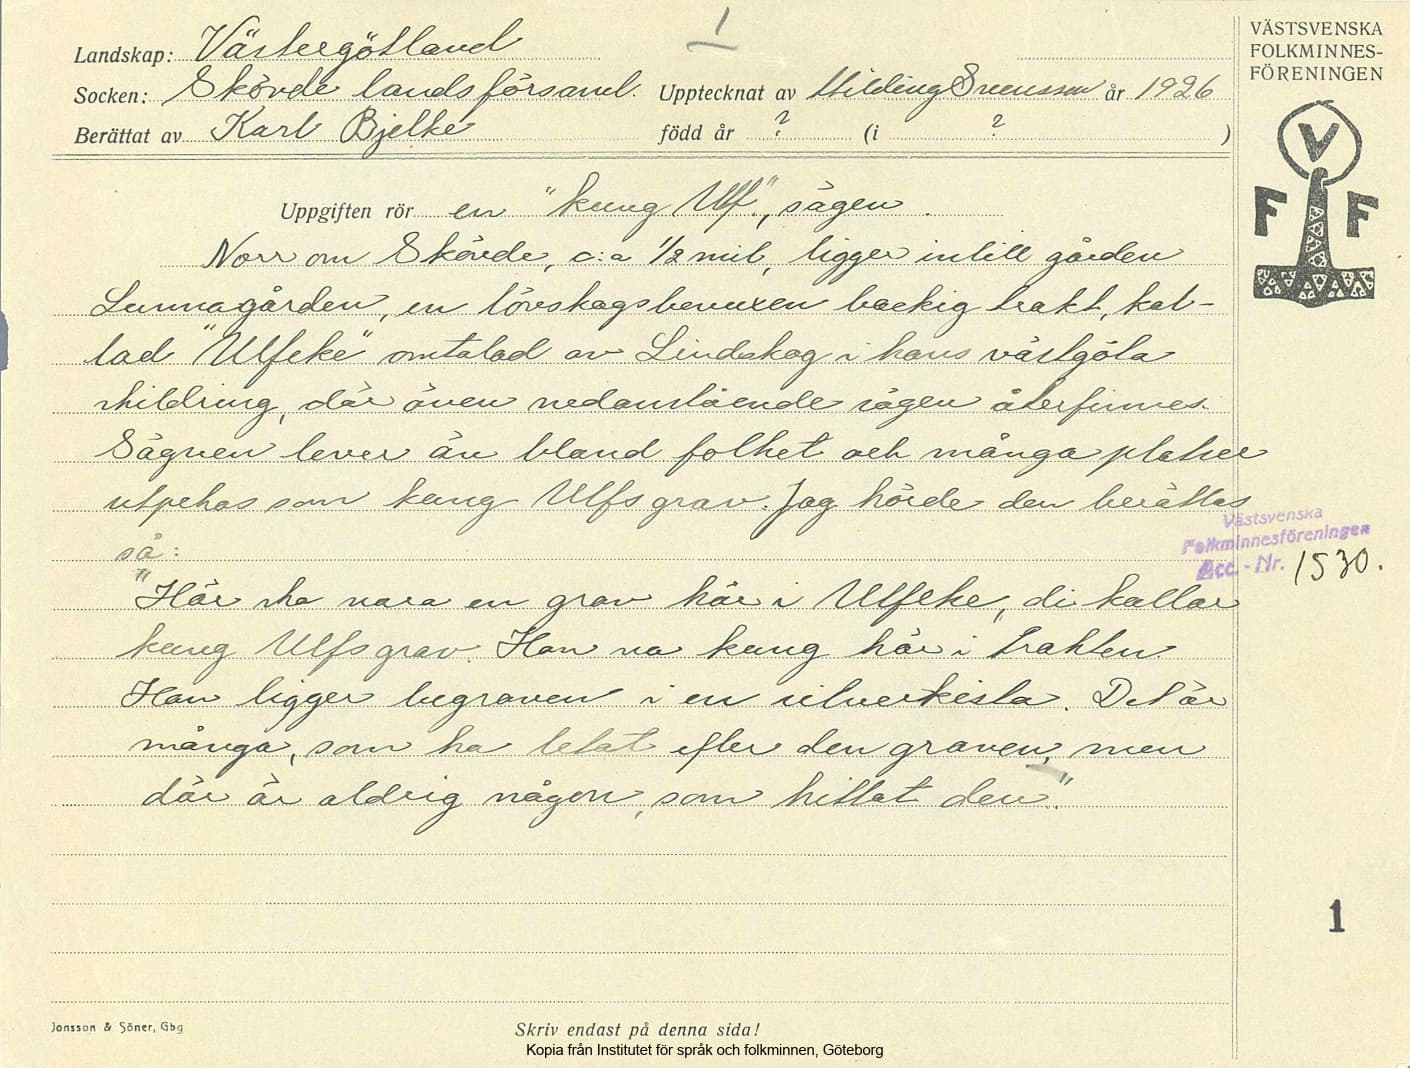 1
Landskap: Västergötland
Socken: Skövde landsförsaml. Upptecknat av Hilding Svensson år 1926
Berättat av Karl Bjelke född år ? (i ? )
VÄSTSVENSKA
FOLKMINNES-
FÖRENINGEN
V
F F
Uppgiften rör en "kung Ulf", sägen.
Norr om Skövde, c:a 1/2 mil, ligger intill gården
Lunnagården, en lövskogsbevuxen backig trakt, kal-
lad "Ulfeke" omtalad av Lindskog i hans västgöta
skildring, där även nedanstående sägen återfinnes.
Sägnen lever än bland folket och många platser
utpekas som kung Ulfs grav. Jag hörde den berättas
så:
Västsvenska
Folkminnesföreningen
Acc.-Nr. 1530.
"Här ska vara en grav här i Ulfeke, di kallar
kung Ulfs grav. Han va kung här i trakten.
Han ligger begraven i en silverkista. Det är
många, som ha letat efter den graven, men
där är aldrig någon, som hittat den."
1
Jonsson & Söner, Gbg
Skriv endast på denna sida!
Kopia från Institutet för språk och folkminnen, Göteborg